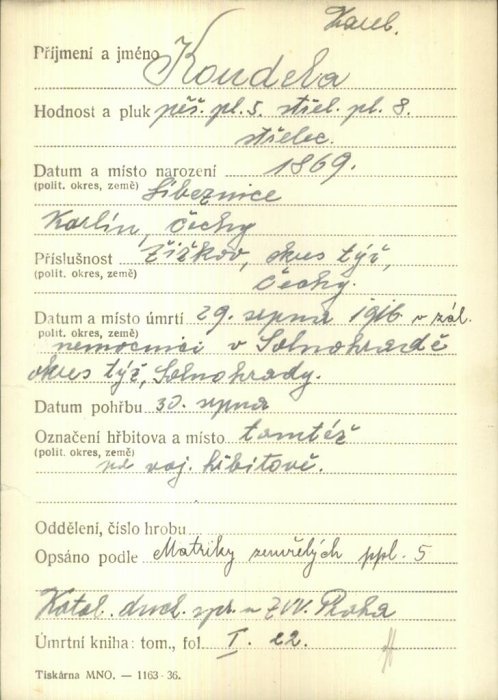 Karel.
Příjmení a jméno Koudela
Hodnost a pluk pěš. pl. 5. střel. pl. 8.
střelec.
Datum a místo narození 1869.
(polit. okres, země) Líbeznice
Karlín, Čechy
Příslušnost Žižkov, okres týž,
(polit. okres, země) Čechy.
Datum a místo úmrtí 29. srpna 1916 v zál.
(polit. okres, země)
nemocnici v Solnohradě
okres týž, Solnohrady.
Datum pohřbu 30. srpna
Označení hřbitova a místo tamtéž
(polit. okres, země) na voj. hřbitově.
Oddělení, číslo hrobu
Opsáno podle Matriky zemřelých ppl. 5
Katol. duch. spr. u ZVV. Praha
Úmrtní kniha: tom., fol. I. 22.
Tiskárna MNO. — 1163-36.